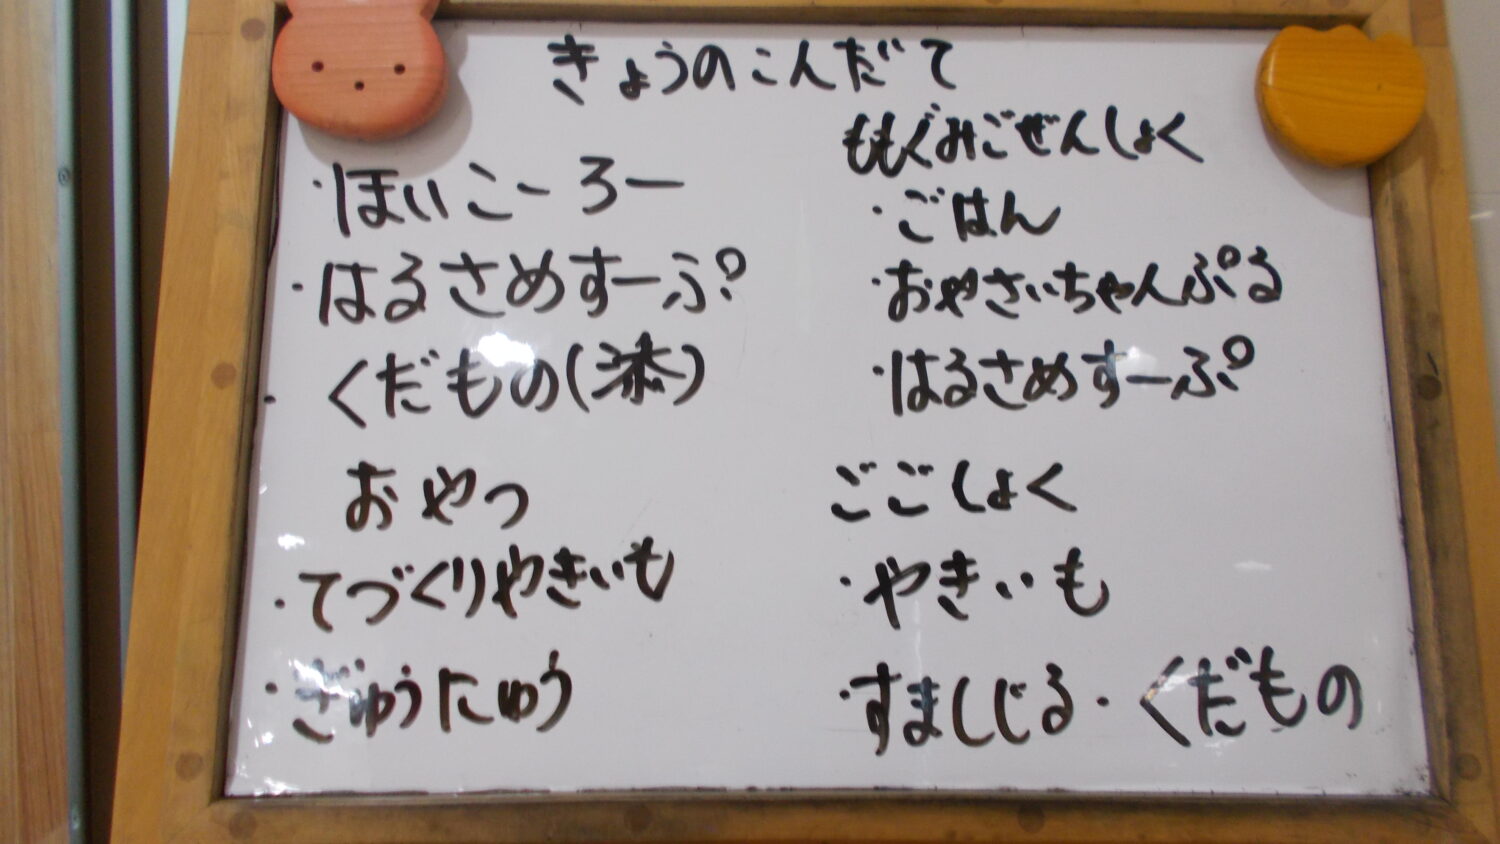 きょうのこんだて
・ほいこーろー
・はるさめすーぷ
・くだもの
おやつ
・てづくりやきいも
・ぎゅうにゅう
ももぐみごぜんしょく
・ごはん
・おやさいちゃんぷる
・はるさめすーぷ
ごごしょく
・やきいも
・すましじる・くだもの